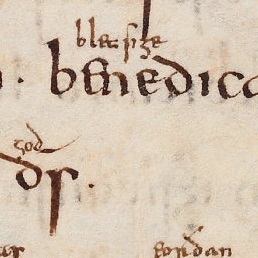 bletsige
. benedica
god
ds.
eorðan